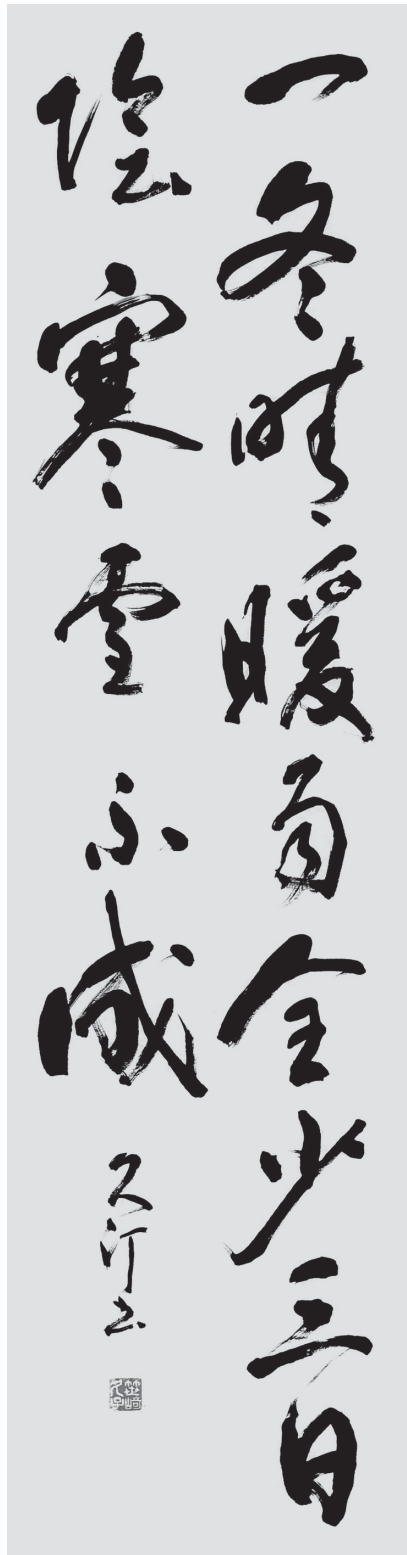 一冬晴暖雨全少三日
陰寒雪不成
久汀書